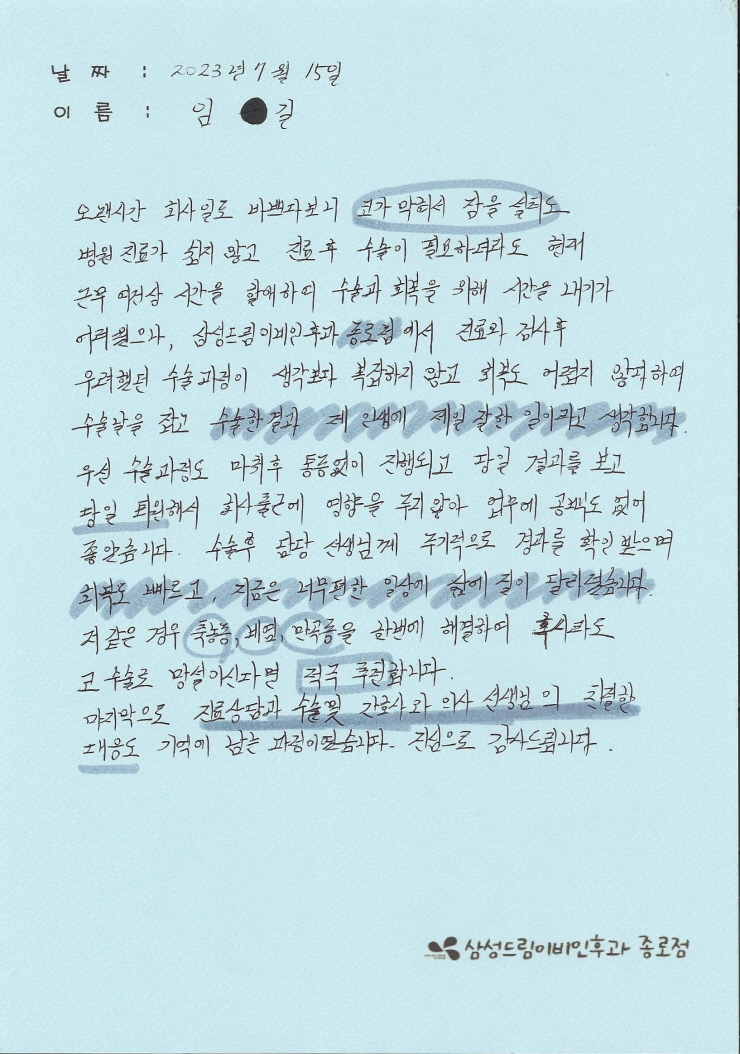 날 짜 : 2023년 7월 15일
이 름 : 임 길
오랜시간 회사일로 바쁘다보니 코가 막혀서 잠을 설쳐도
병원 진료가 쉽지 않고 진료후 수술이 필요하더라도 현재
근무 여건상 시간을 할애하여 수술과 회복을 위해 시간을 내기가
어려웠으나, 삼성드림이비인후과 종로점에서 진료와 검사후
우려했던 수술과정이 생각보다 복잡하지 않고 회복도 어렵지 않다하여
수술날을 잡고 수술한결과 제 인생에 제일 잘한 일이라고 생각합니다.
우선 수술과정도 마취후 통증없이 진행되고 당일 결과를 보고
당일 퇴원해서 회사출근에 영향을 주지않아 업무에 공백도 없어
좋았습니다. 수술후 담당 선생님께 주기적으로 경과를 확인 받으며
회복도 빠르고, 지금은 너무편한 일상에 삶에 질이 달라졌습니다.
저 같은 경우 축농증, 비염, 만곡증을 한번에 해결하여 혹시라도
코 수술로 망설이신다면 적극 추천합니다.
마지막으로 진료상담과 수술및 간호사와 의사 선생님의 친절한
대응도 기억에 남는 과정이었습니다. 진심으로 감사드립니다.
삼성드림이비인후과 종로점